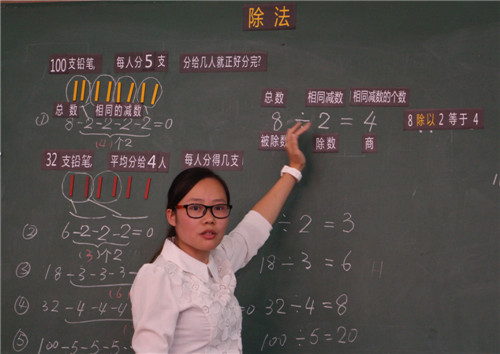 除法
100支铅笔 每人分5支 分给几人就正好分完?
总数 相同的减数
① 8-2-2-2-2=0
4个2
总数 相同减数 相同减数的个数
8÷2=4
被除数 除数 商
8除以2等于4
32支铅笔 平均分给4人 每人分得几支
② 6-2-2-2=0
3个2
÷2=3
③ 18-3-3-3-
18÷3=6
④ 32-4-4-4
32÷4=8
⑤ 100-5-5-5
100÷5=20